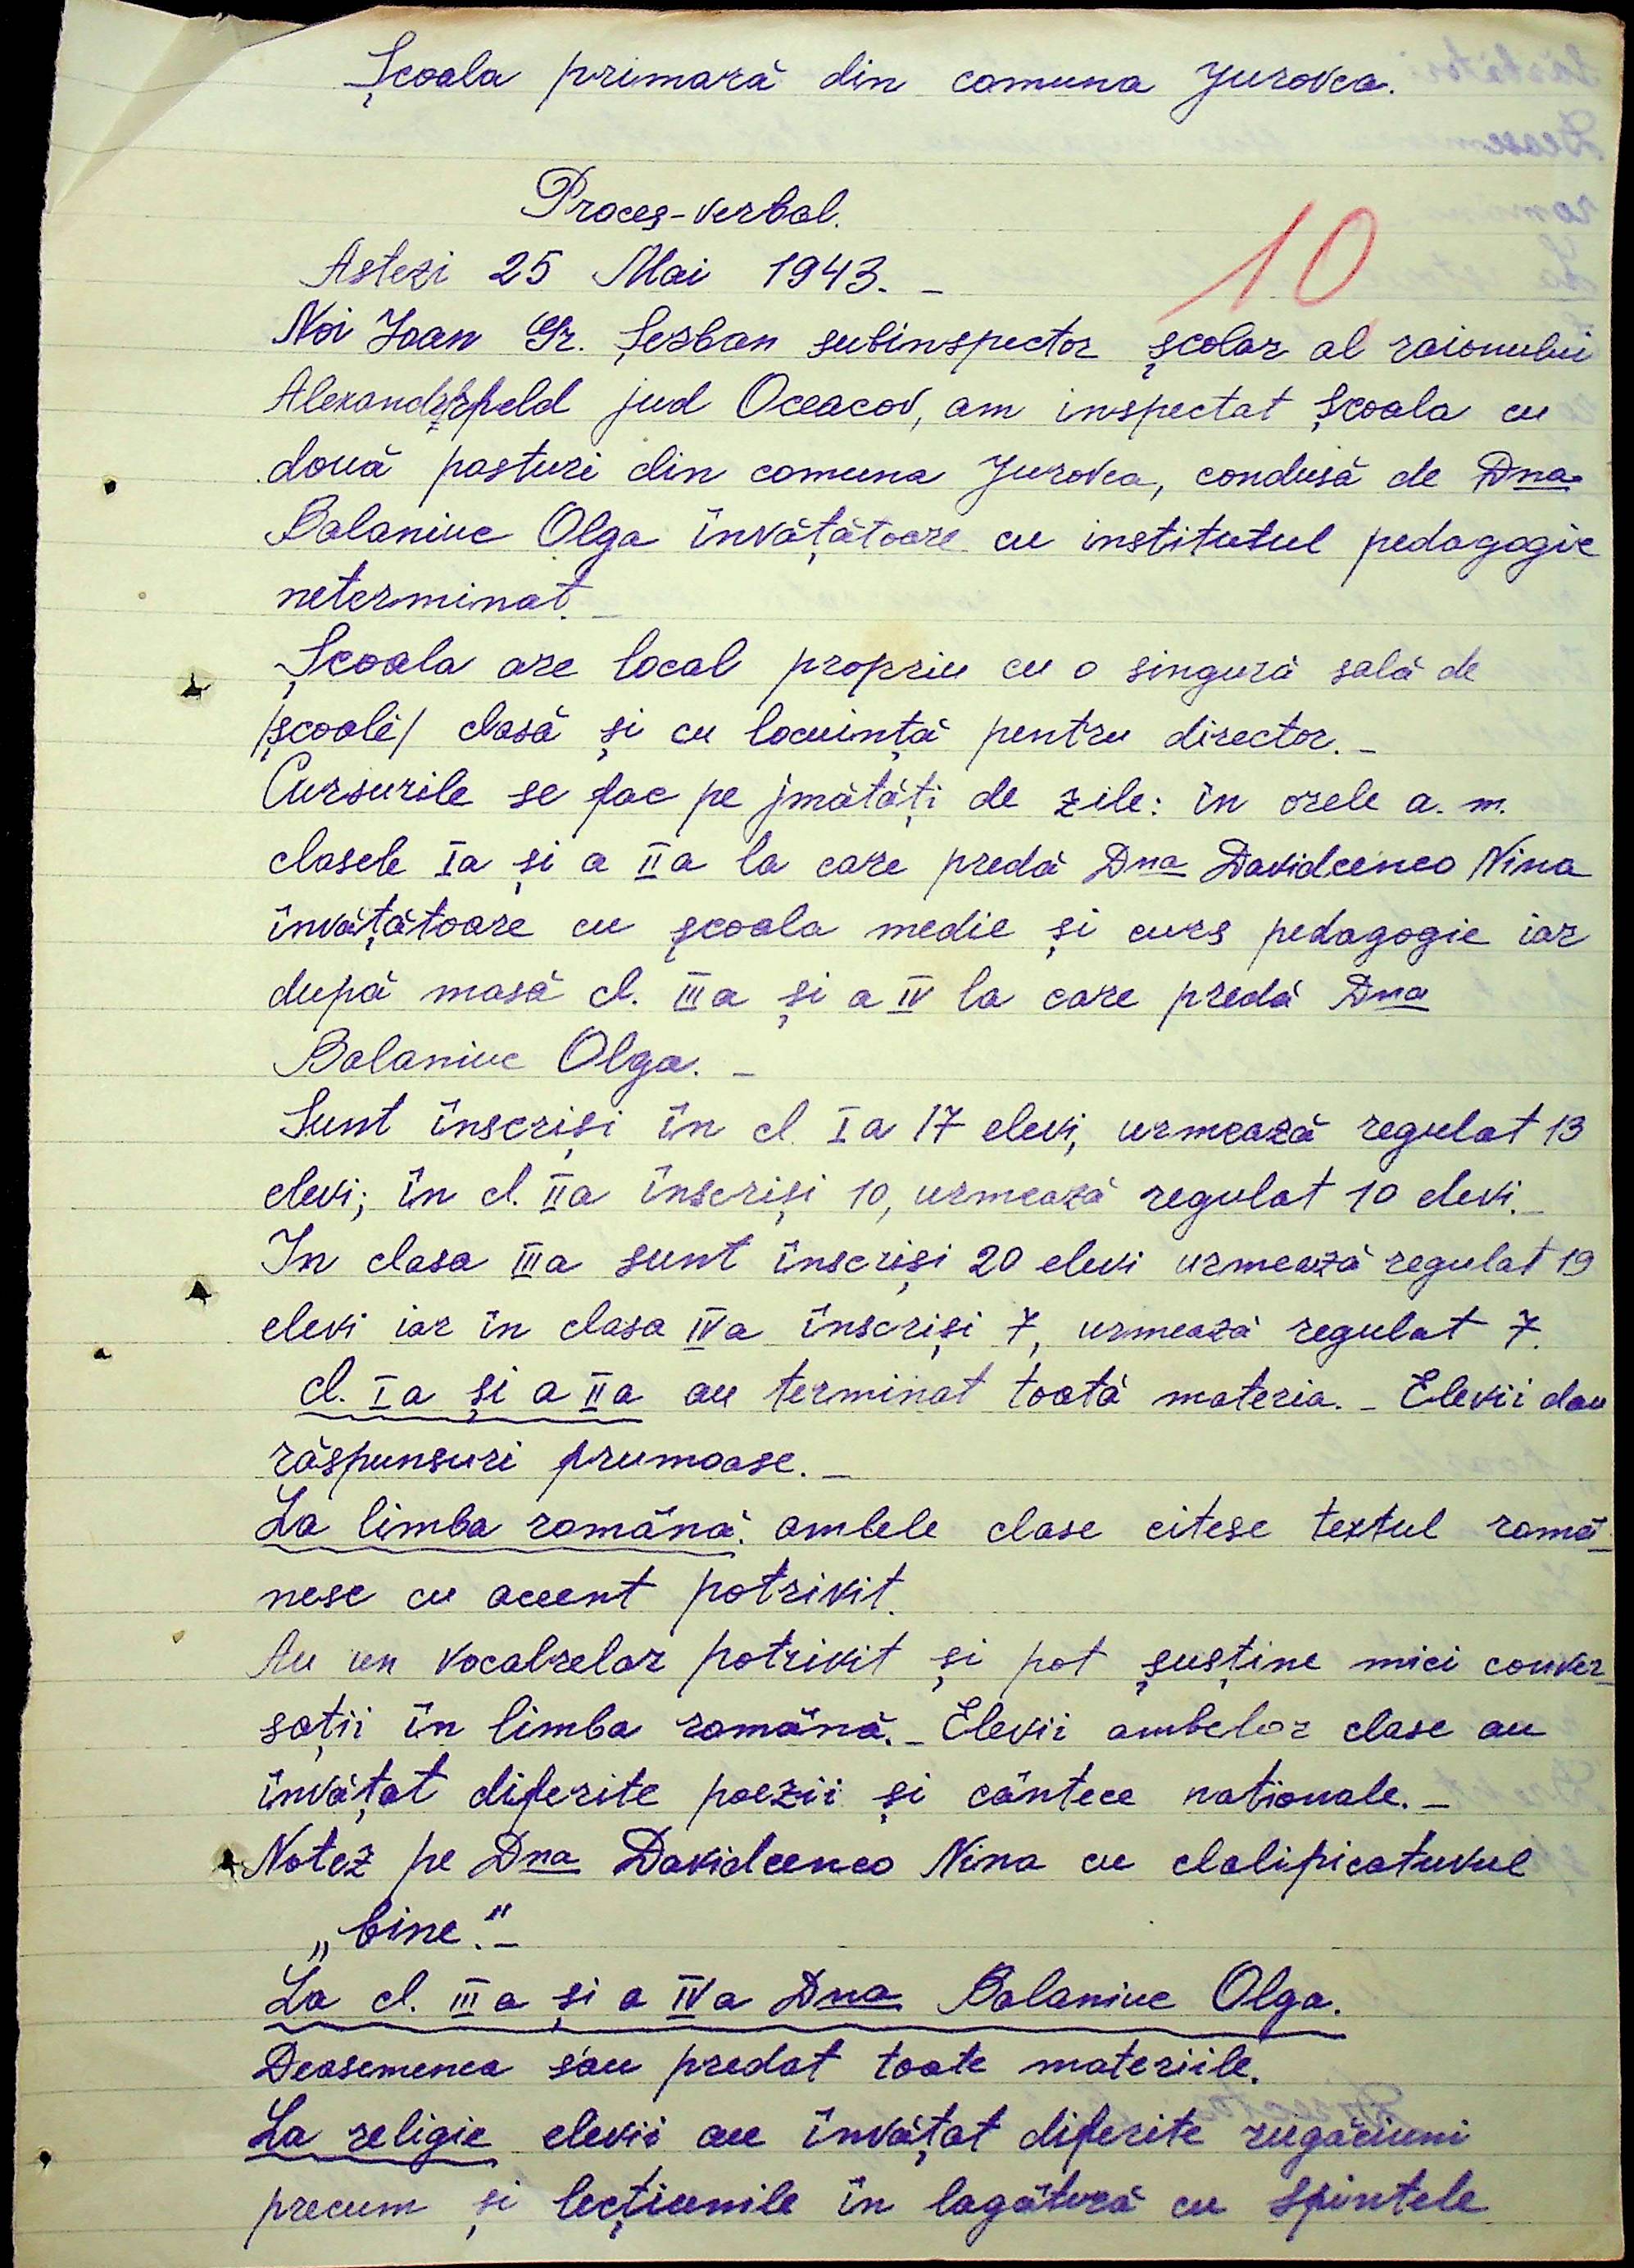 Școala primară din comuna Jurovca.
Proceș-verbal.
10
Astezi 25 Mai 1943. -
Noi Ioan Gr. Șerban subinspector școlar al raionului
jud Oceacov, am inspectat școala cu
două posturi din comuna Jurovca, condusă de Dna
Balaniuc Olga învățătoare cu institutul pedagogic
neterminat. -
Școala are local propriu cu o singură sală de
/școală/ clasă și cu locuință pentru director. -
Cursurile se fac pe jmătăți de zile: în orele a. m.
clasele Ia și a IIa la care predă Dna Davidcenco Nina
învățătoare cu școala medie și curs pedagogic iar
după masă cl. IIIa și a IV la care predă Dna
Balaniuc Olga. -
Sunt înscriși în cl. Ia 17 elevi, urmează regulat 13
elevi; în cl. IIa înscriși 10, urmează regulat 10 elevi. -
In clasa IIIa sunt înscriși 20 elevi urmează regulat 19
elevi iar în clasa IVa înscriși 7, urmează regulat 7.
cl. Ia și a IIa au terminat toată materia. - Elevii dau
răspunsuri frumoase. -
La limba română: ambele clase citesc textul româ-
nesc cu accent potrivit.
Au un vocabrelar potrivit și pot susține mici conver-
sații în limba română. - Elevii ambelor clase au
învățat diferite poezii și cântece nationale. -
Notez pe Dna Davidcenco Nina cu clalificatuvul
„bine". -
La cl. IIIa și a IVa Dna Balaniuc Olga.
Deasemenea s'au predat toate materiile.
La religie elevii au învățat diferite rugăciuni
precum și lecțiunile în lagătură cu sfintele